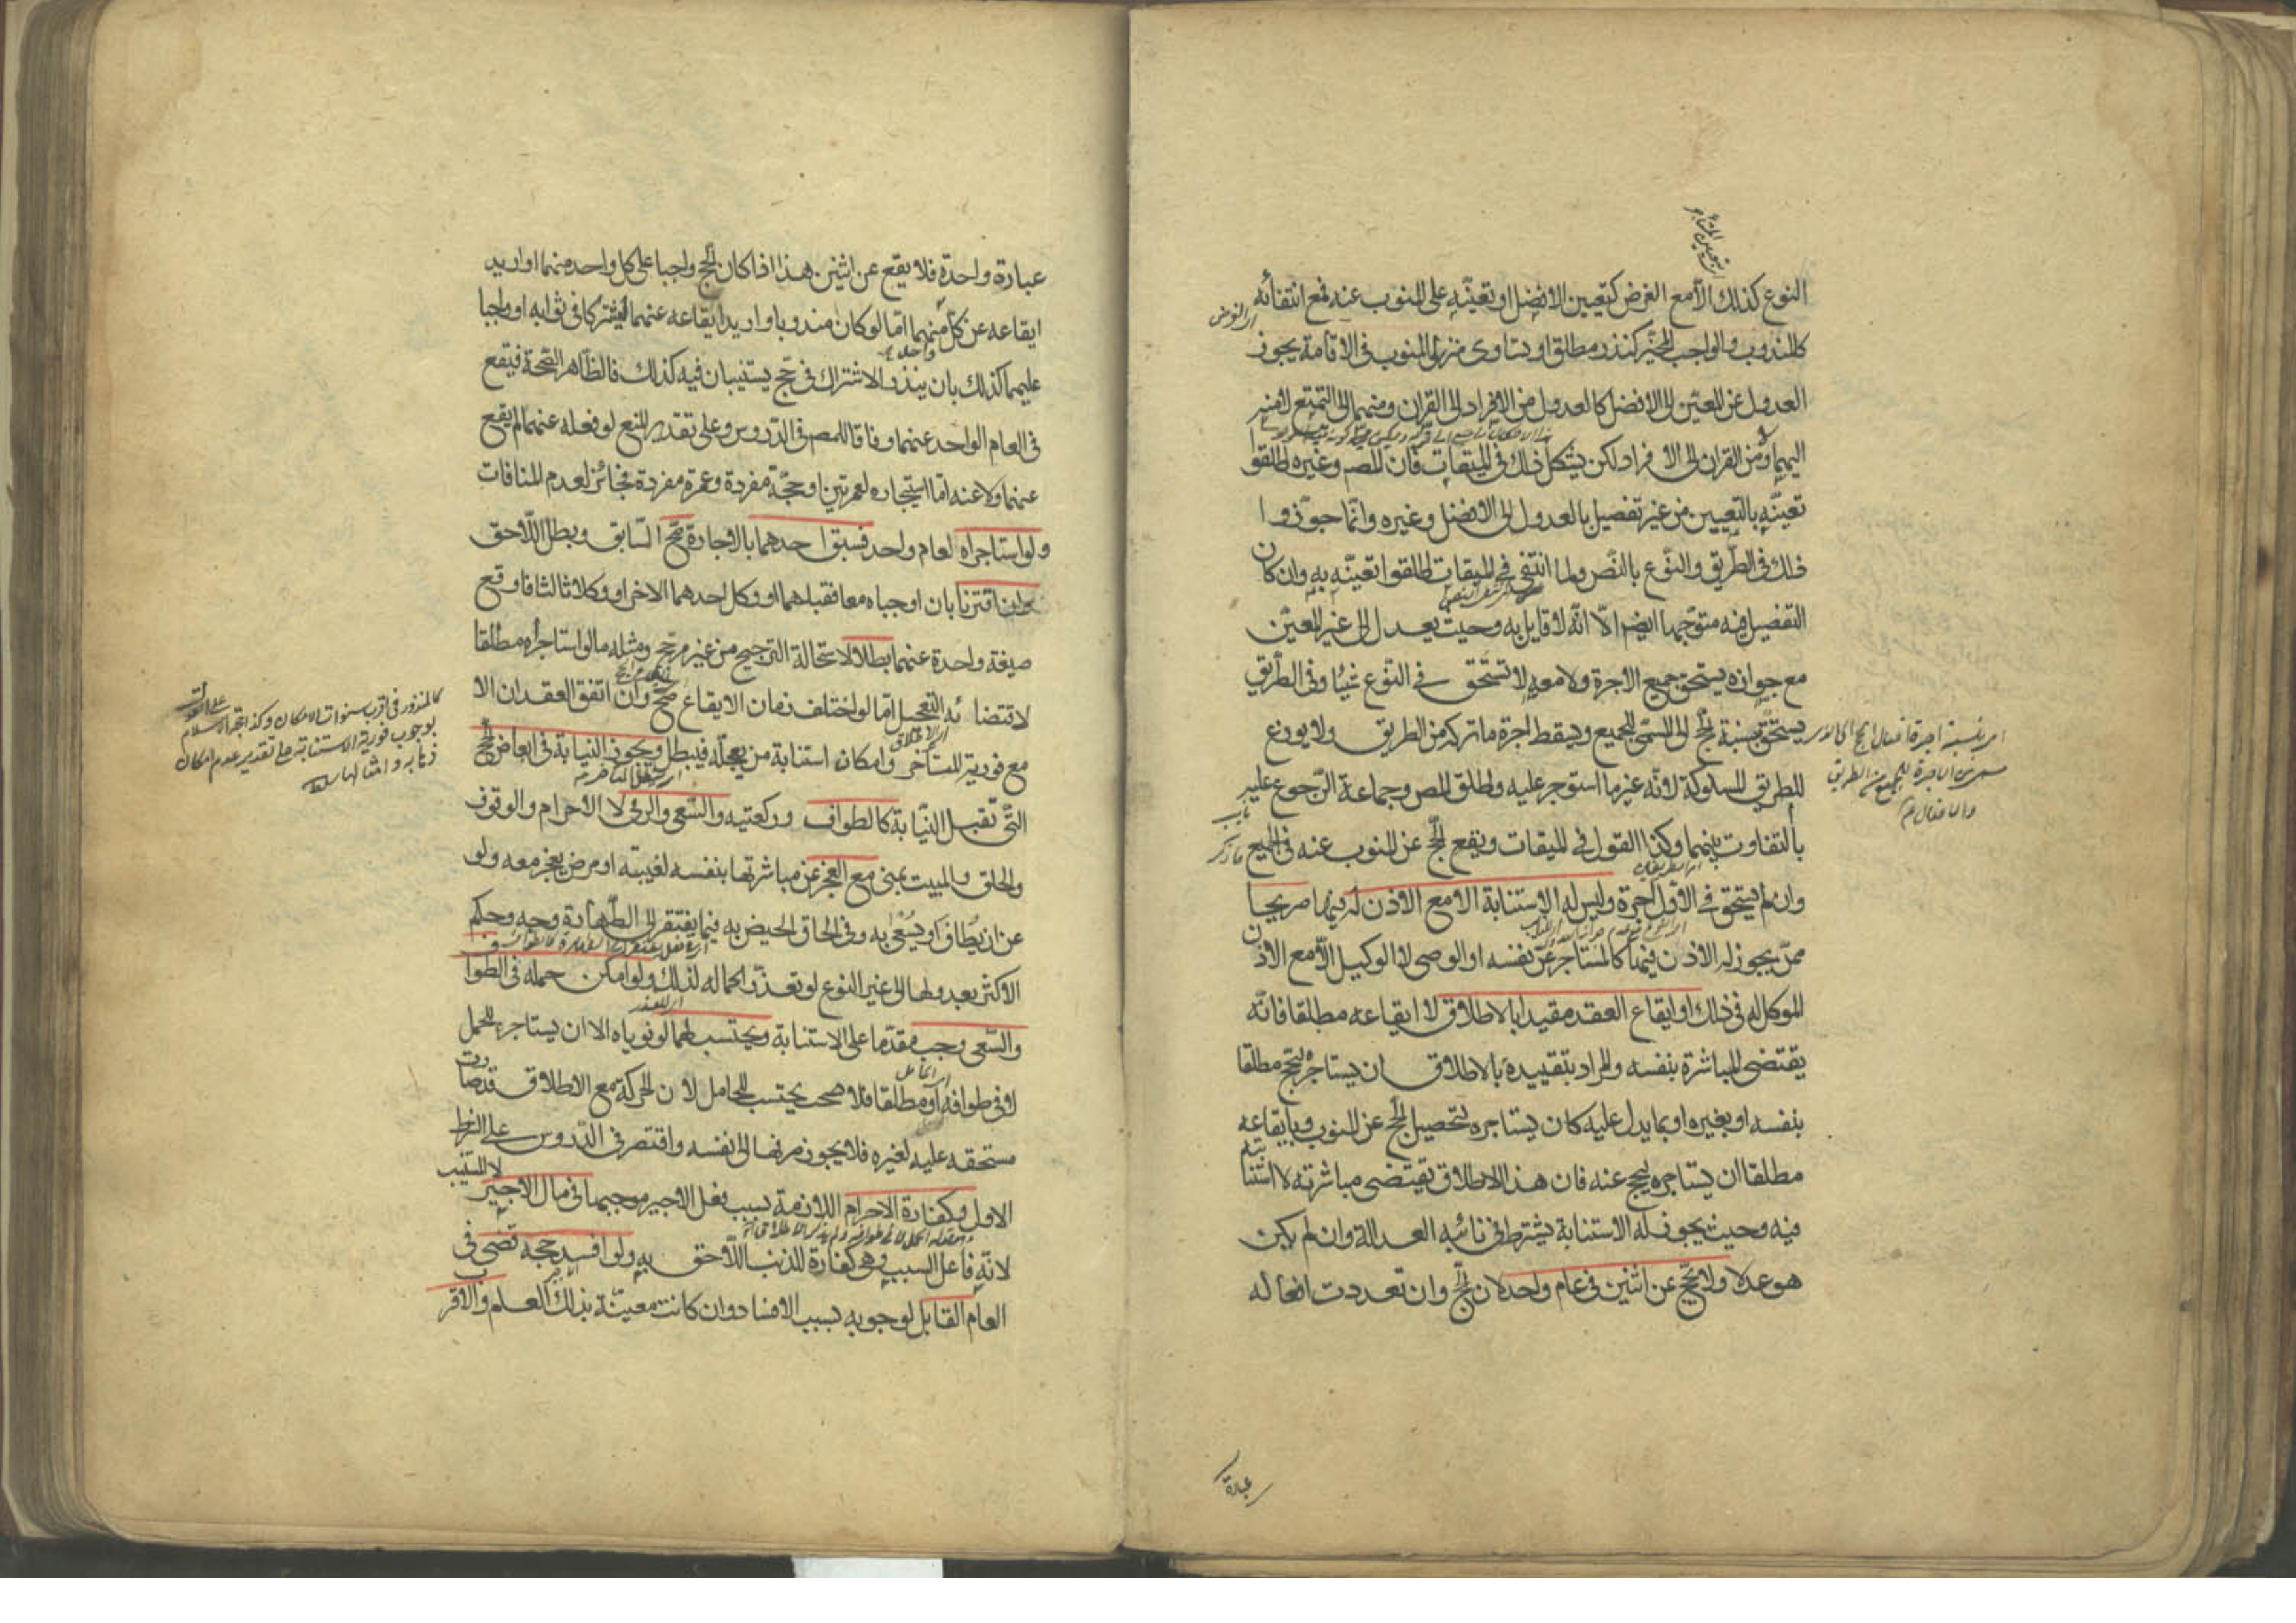 النوع كذلك الا مع الغرض كتعيين الافضل او تعينه على المنوب عنه فمع انتفائه
كالمندوب والواجب المخير كنذر مطلق او تساوى منزلى المنوب فى الاقامة يجوز
العدول عن المعين الى الافضل كالعدول من الافراد الى القران ومنهما الى التمتع لا منه
اليهما ولا من القران الى الافراد لكن يشكل ذلك فى الميقات فان المص وغيره اطلقوا
تعينه بالتعيين من غير تفصيل بالعدول الى الافضل وغيره وانما جوزوا
ذلك فى الطريق والنوع بالنص ولما انتفى فى الميقات اطلقوا تعينه به وان كان
التفصيل فيه متوجها ايضم الا انه لا قايل به وحيث يعدل الى غير المعين
مع جوازه يستحق جميع الاجرة ولا معه لا تستحق فى النوع شيئا وفى الطريق
يستحق بنسبة الحج الى المسمى للجميع ويسقط اجرة ما تركه من الطريق ولا يوزع
للطريق المسلوكة لانه غير ما استوجر عليه واطلق المص وجماعة الرجوع عليه
بالتفاوت بينهما وكذا القول فى الميقات ويقع الحج عن المنوب عنه فى الجميع
وان لم يستحق فى الاول اجرة وليس له الاستنابة الا مع الاذن له فيها صريحا
ممن يجوز له الاذن فيها كالمستاجر عن نفسه او الوصى لا الوكيل الا مع الاذن
الموكل له فى ذلك او ايقاع العقد مقيدا بالاطلاق لا ايقاعه مطلقا فانه
يقتضى المباشرة بنفسه والمراد بتقييده بالاطلاق ان يستاجره ليحج مطلقا
بنفسه او بغيره او بما يدل عليه كان يستاجره لتحصيل الحج عن المنوب وبايقاعه
مطلقا ان يستاجره ليحج عنه فان هذا الاطلاق يقتضى مباشرته لا استنابته
فيه وحيث يجوز له الاستنابة يشترط فى نائبه العدالة وان لم يكن
هو عدلا ولا يحج عن اثنين فى عام واحد لان الحج وان تعددت افعاله
عبارة
عبارة واحدة فلا يقع عن اثنين هذا اذا كان الحج واجبا على كل واحد منهما او اريد
ايقاعه عن كل منهما اما لو كان مندوبا واريد ايقاعه عنهما ليشتركا فى ثوابه او واجبا
عليهما كذلك بان ينذر الاشتراك فى حج يستنيبان فيه كذلك فالظاهر الصحة فيقع
فى العام الواحد عنهما وفاقا للمص فى الدروس وعلى تقدير المنع لو فعله عنهما لم يقع
عنهما ولا عنه اما استيجاره لعمرتين او حجة مفردة وعمرة مفردة فجائز لعدم المنافات
ولو استاجراه لعام واحد فسبق احدهما بالاجارة صح السابق وبطل اللاحق
وان اقترنا بان اوجباه معا فقبلهما او وكل احدهما الاخر او وكلا ثالثا فاوقع
صيغة واحدة عنهما بطلا لاستحالة الترجيح من غير مرجح ومثله ما لو استاجراه مطلقا
لاقتضائه التعجيل اما لو اختلف زمان الايقاع صح وان اتفق العقدان الا
مع فورية المتاخر وامكان استنابة من يعجله فيبطل ويجوز النيابة فى ابعاض الحج
التى تقبل النيابة كالطواف وركعتيه والسعى والرمى لا الاحرام والوقوف
والحلق والمبيت بمنى مع العجز عن مباشرتها بنفسه لغيبته او مرض يعجز معه ولو
عن ان يطاف او يسعى به وفى الحاق الحيض به فيما يفتقر الى الطهارة وجه وحكم
الاكثر بعدولها الى غير النوع لو تعذر اكماله لذلك ولو امكن حمله فى الطواف
والسعى وجب مقدما على الاستنابة ويحتسب لهما لو نوياه الا ان يستاجره للحمل
لا فى طوافه او مطلقا فلا يحتسب للحامل لان الحركة مع الاطلاق قد صارت
مستحقه عليه لغيره فلا يجوز صرفها الى نفسه واقتصر فى الدروس على الشرط
الاول وكفارة الاحرام اللازمة بسبب فعل الاجير موجبها فى مال الاجير لا المستنيب
لانه فاعل السبب وهى كفارة للذنب اللاحق به ولو افسد حجه قضى فى
العام القابل لوجوبه بسبب الافساد وان كانت معينة بذلك العام والاقرب
كالمنذور فى اقرب سنوات الامكان وكذا حجة الاسلام